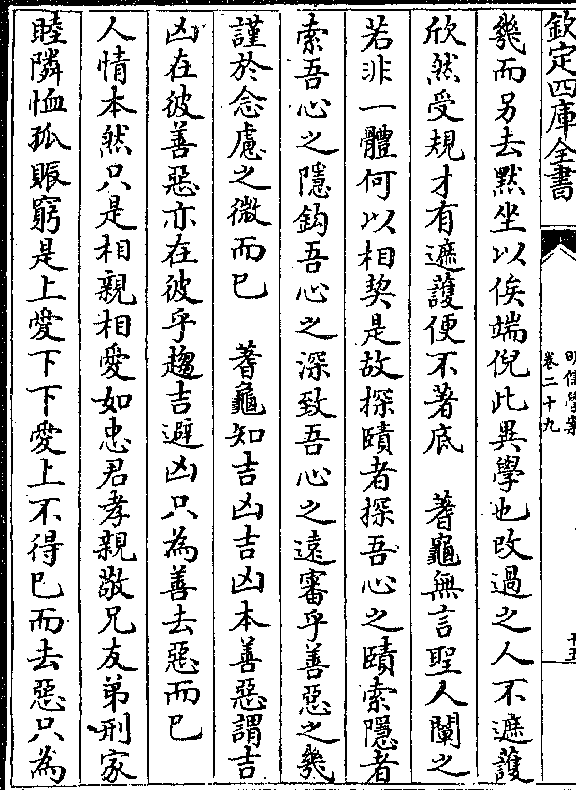 欽定四庫全書
明儒學案
卷二十九
十五
幾而另去默坐以俟端倪此異學也改過之人不遮護
欣然受規才有遮護便不著底　蓍龜無言聖人闡之
若非一體何以相契是故探賾者探吾心之賾索隱者
索吾心之隱鈎吾心之深致吾心之遠審乎善惡之幾
謹於念慮之微而已　蓍龜知吉凶吉凶本善惡謂吉
凶在彼善惡亦在彼乎趨吉避凶只為善去惡而已
人情本然只是相親相愛如忠君孝親敬兄友弟刑家
睦隣恤孤賑窮是上愛下下愛上不得已而去惡只為